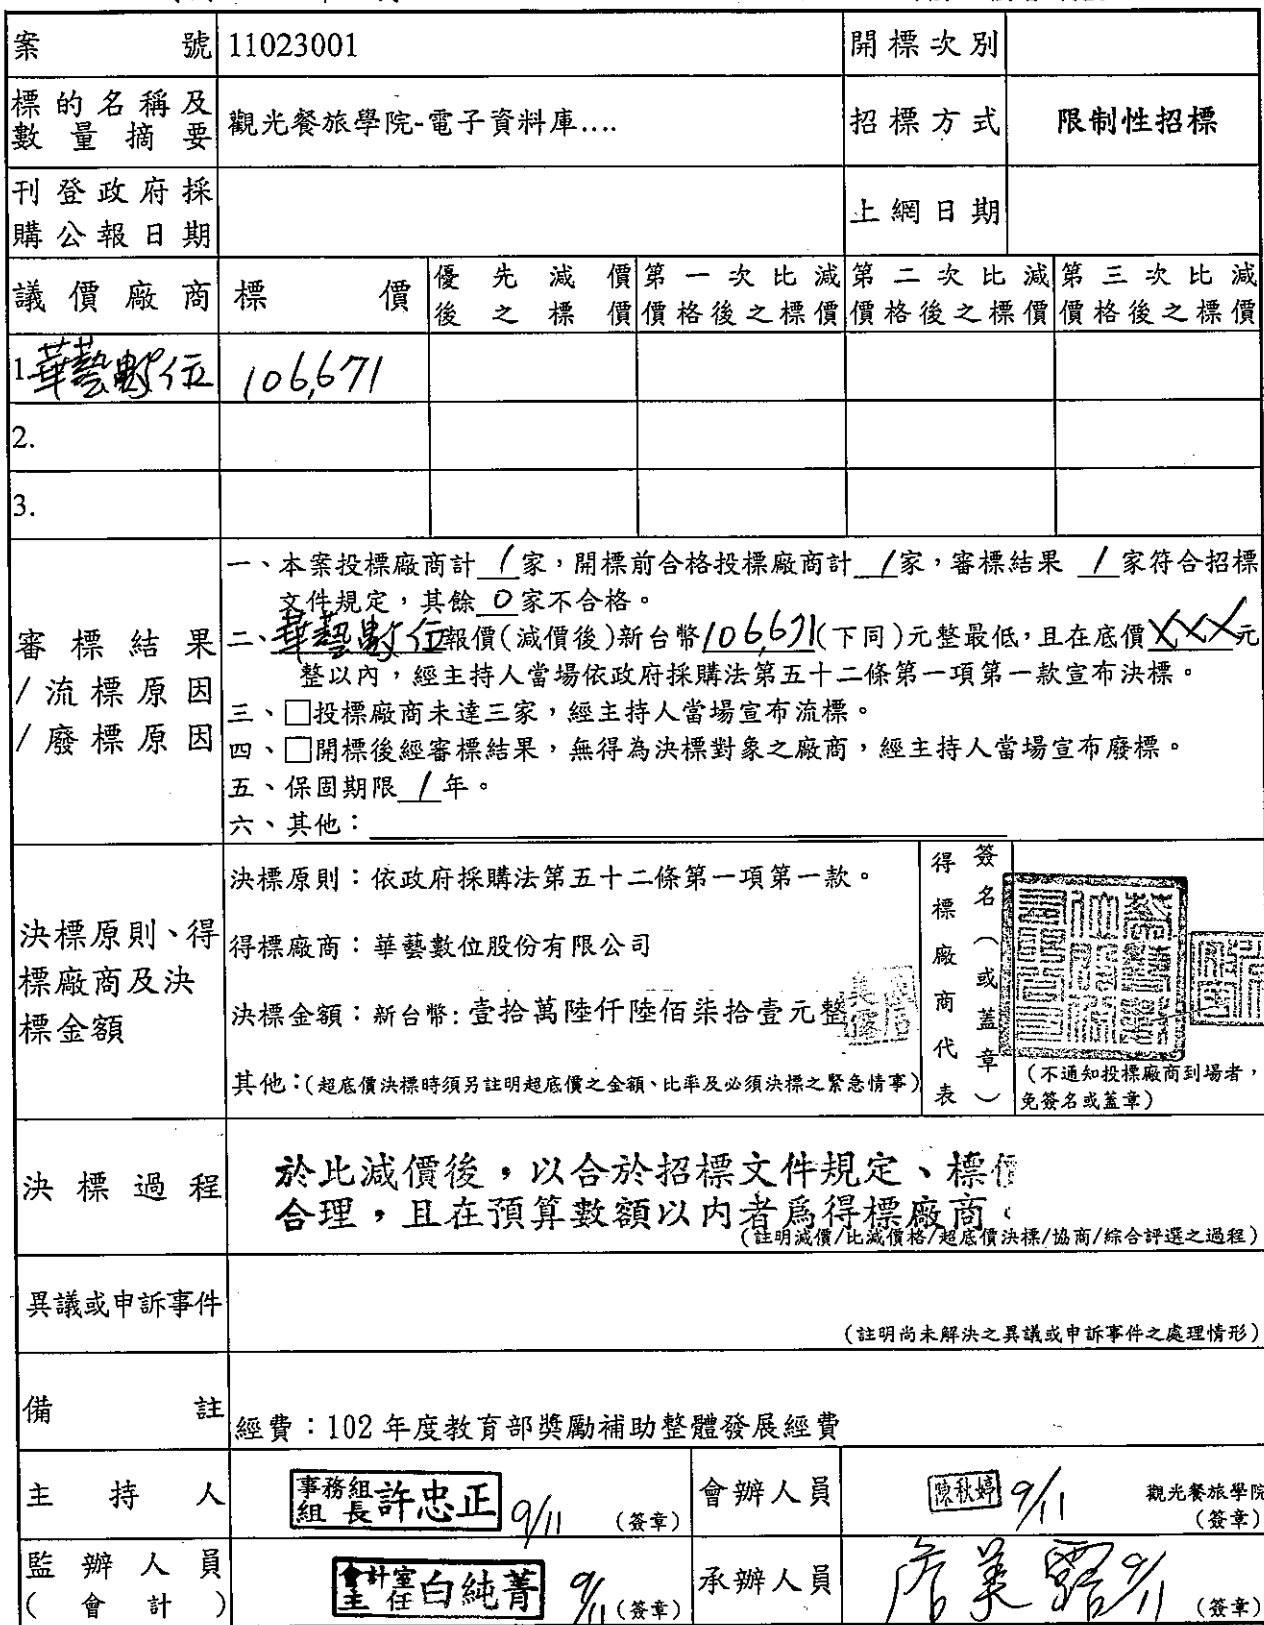 案號 11023001 開標次別
標的名稱及數量摘要 觀光餐旅學院-電子資料庫.... 招標方式 限制性招標
刊登政府採購公報日期 上網日期
議價廠商 標價 優先減價後之標價 第一次比減價格後之標價 第二次比減價格後之標價 第三次比減價格後之標價
1.華藝數位 106,671
2.
3.
審標結果/流標原因/廢標原因
一、本案投標廠商計 1 家，開標前合格投標廠商計 1 家，審標結果 1 家符合招標
文件規定，其餘 0 家不合格。
二、華藝數位報價(減價後)新台幣106,671(下同)元整最低，且在底價XXX元
整以內，經主持人當場依政府採購法第五十二條第一項第一款宣布決標。
三、□投標廠商未達三家，經主持人當場宣布流標。
四、□開標後經審標結果，無得為決標對象之廠商，經主持人當場宣布廢標。
五、保固期限 1 年。
六、其他：
決標原則、得標廠商及決標金額
決標原則：依政府採購法第五十二條第一項第一款。
得標廠商：華藝數位股份有限公司
決標金額：新台幣：壹拾萬陸仟陸佰柒拾壹元整
其他：(超底價決標時須另註明超底價之金額、比率及必須決標之緊急情事)
得標廠商代表
簽名（或蓋章）
(不通知投標廠商到場者，
免簽名或蓋章)
決標過程
於比減價後，以合於招標文件規定、標價
合理，且在預算數額以內者為得標廠商。
(註明減價/比減價格/超底價決標/協商/綜合評選之過程)
異議或申訴事件
(註明尚未解決之異議或申訴事件之處理情形)
備註
經費：102 年度教育部獎勵補助整體發展經費
主持人 事務組組長 許忠正 9/11 (簽章) 會辦人員 陳秋婷 9/11 觀光餐旅學院 (簽章)
監辦人員(會計) 會計室主任 白純菁 9/11 (簽章) 承辦人員 詹美露 9/11 (簽章)